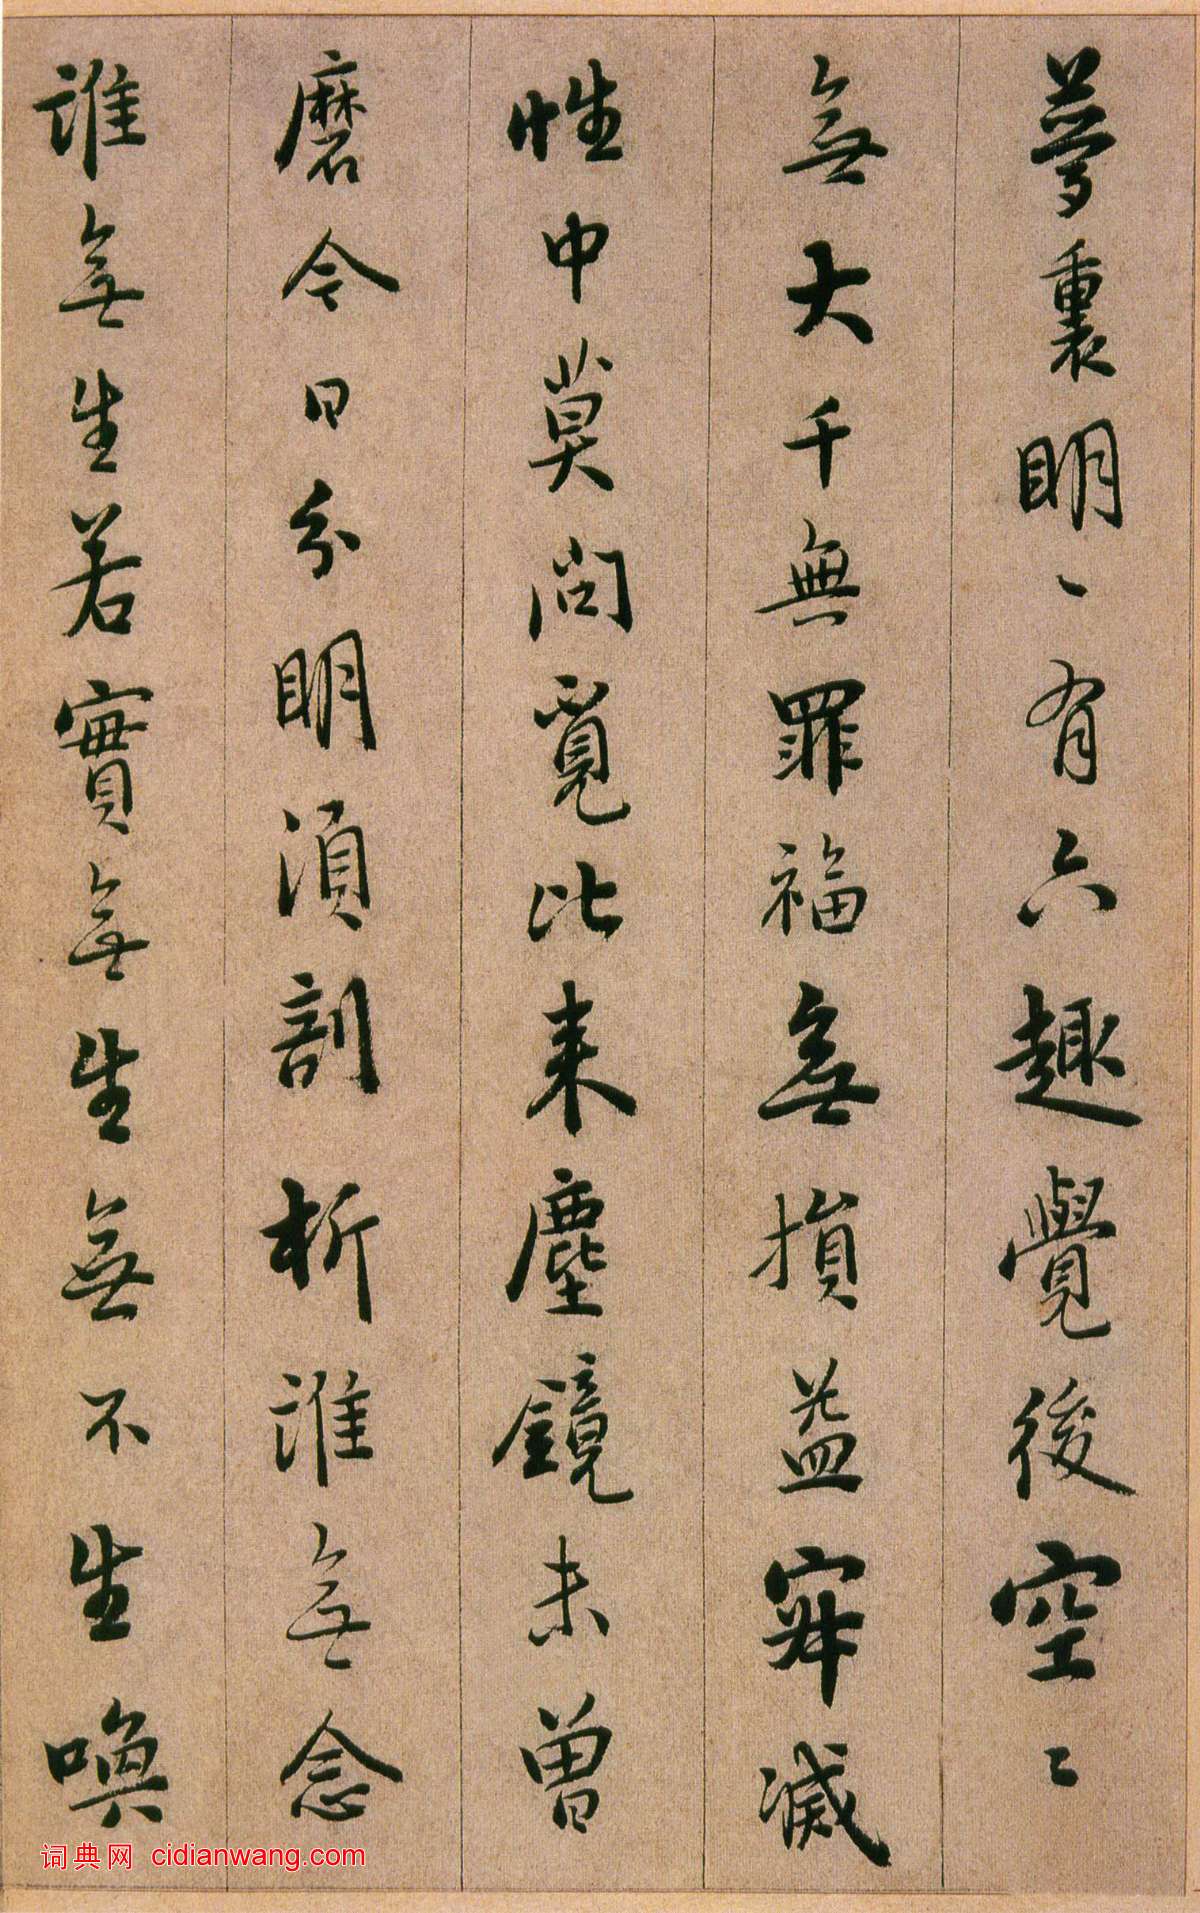 夢裏明〻有六趣覺後空〻
無大千無罪福無損益寂滅
性中莫問覓比来塵鏡未曾
磨今日分明須剖析誰無念
誰無生若實無生無不生喚
词典网 cidianwang.com